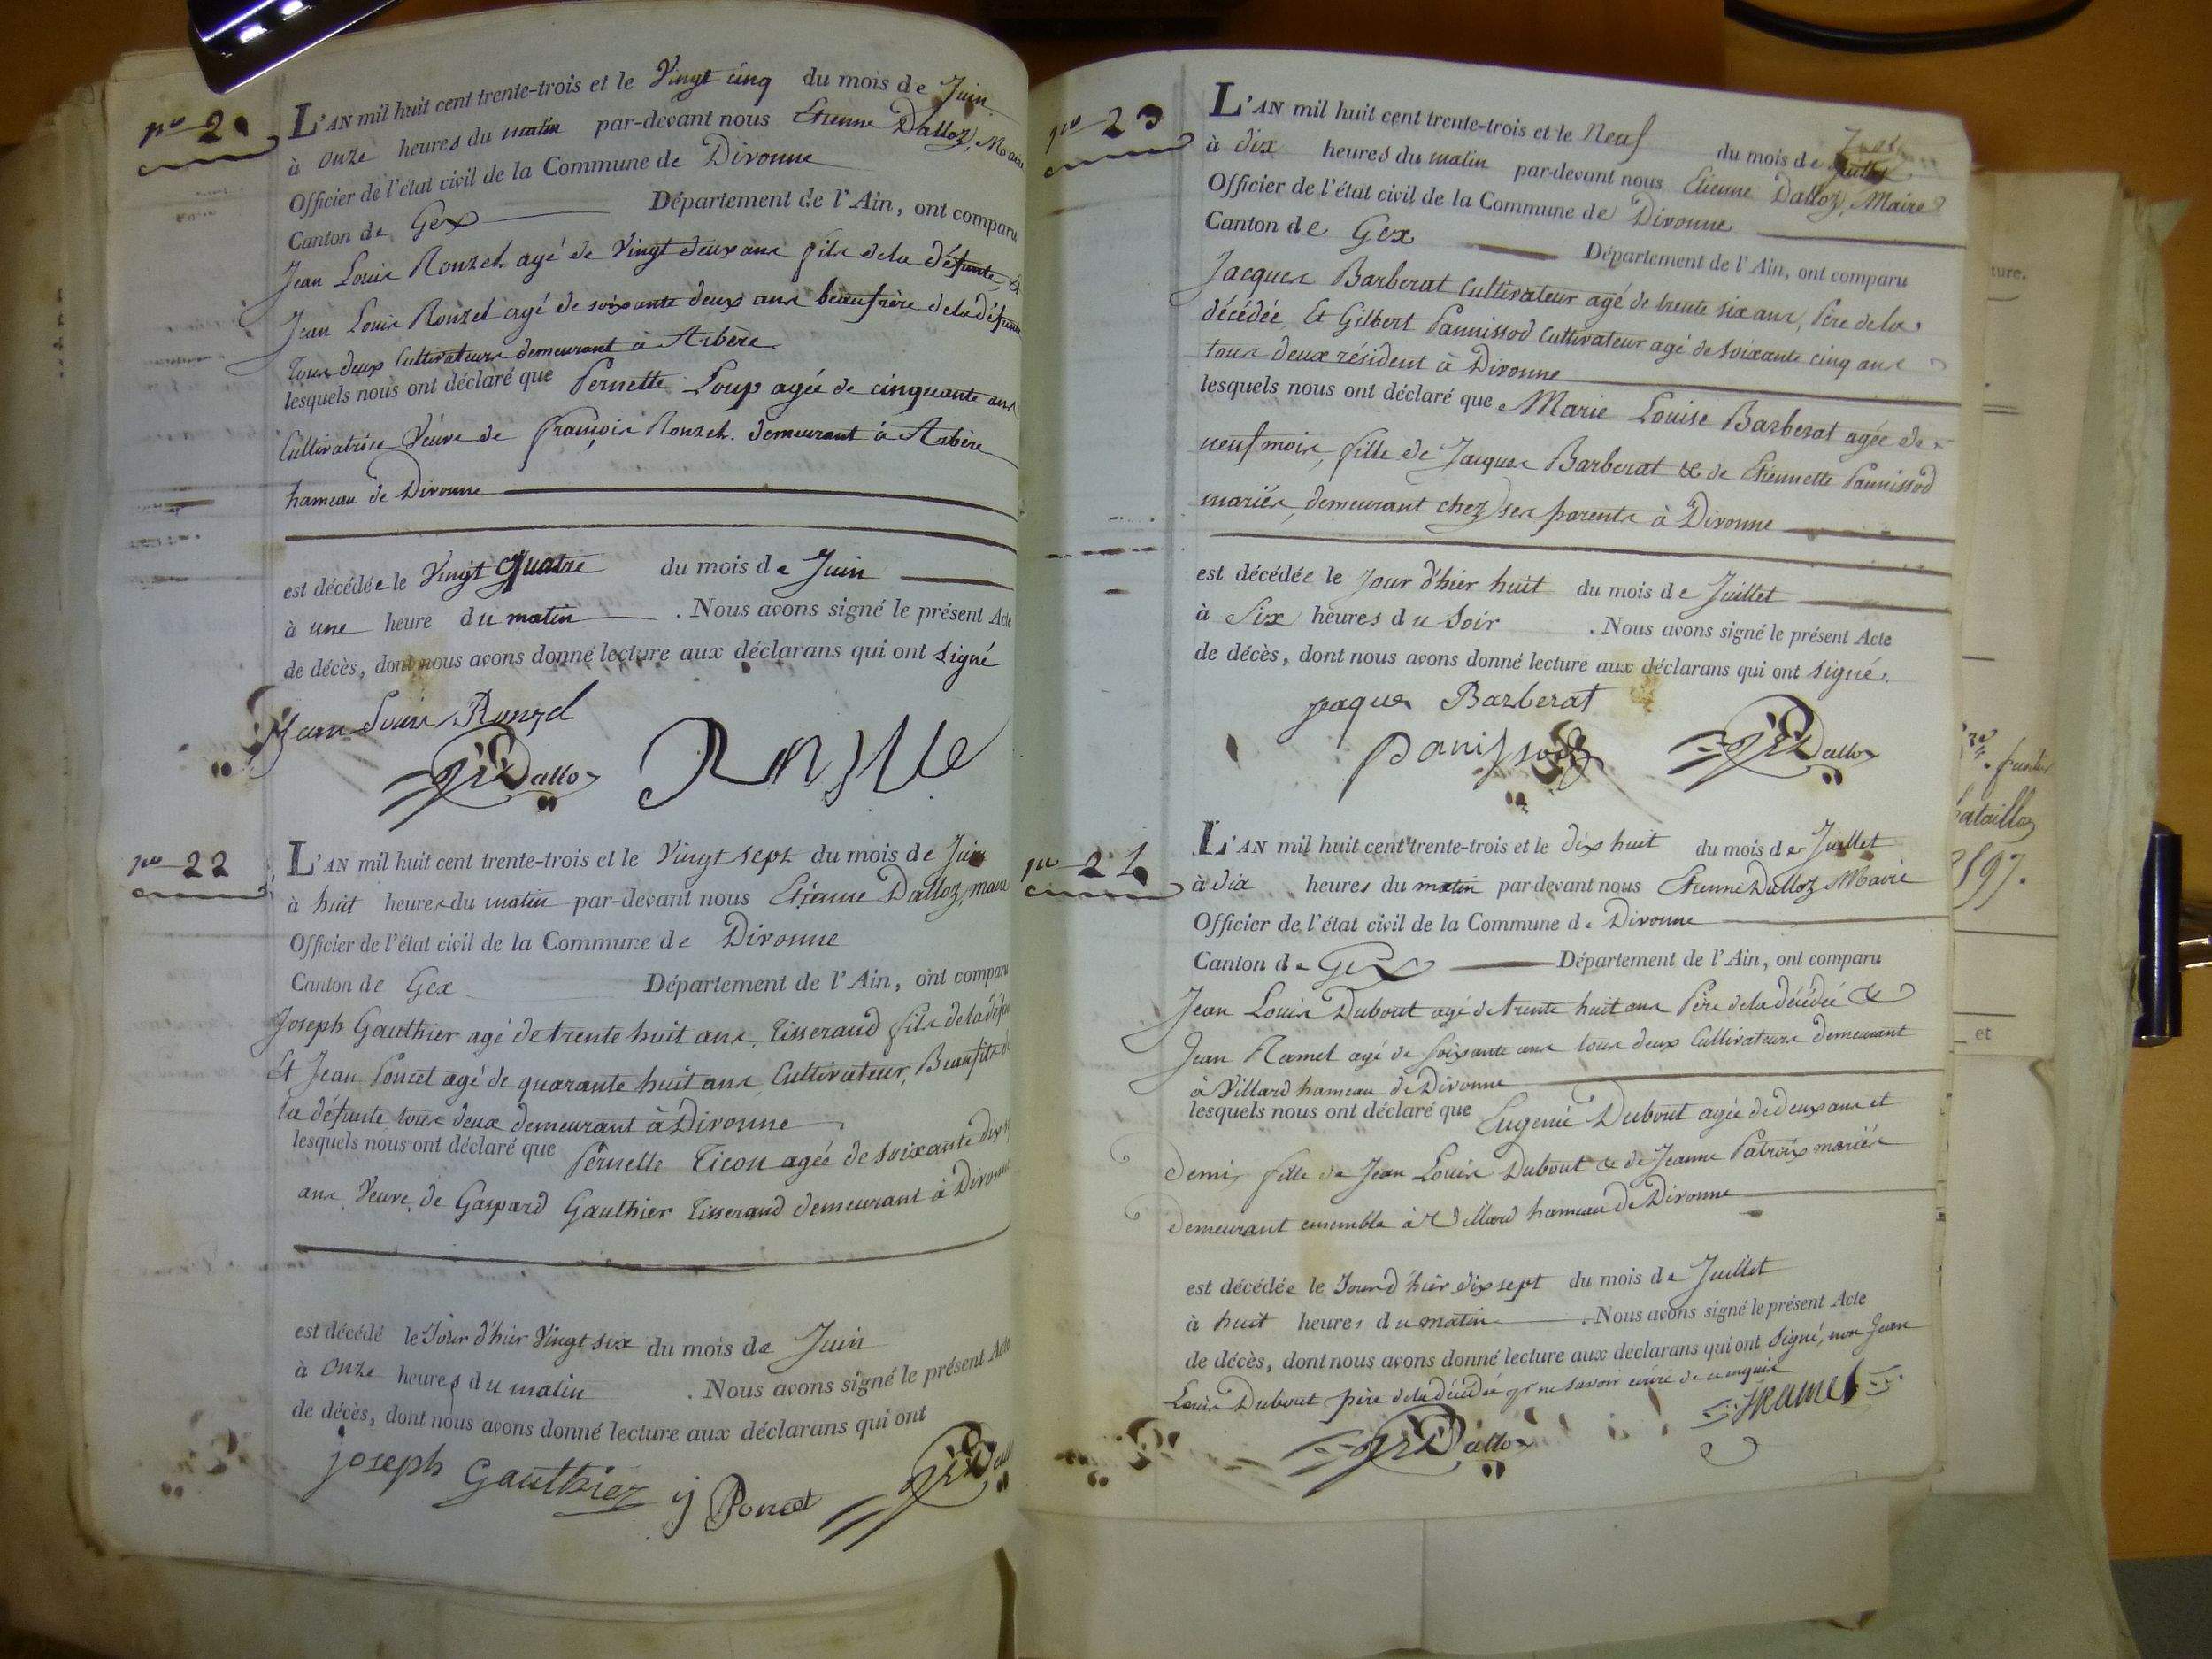 nº 2
L'AN mil huit cent trente-trois et le Vingt cinq du mois de Juin
à onze heures du matin par-devant nous Etienne Dalloz, Maire
Officier de l'état civil de la Commune de Divonne
Canton de Gex Département de l'Ain, ont comparu
Jean Louis Ronzel agé de Vingt deux ans fils de la défunte, &
Jean Louis Ronzel agé de soixante deux ans beaufrère de la défunte
Tous deux Cultivateurs demeurant à Arbère
lesquels nous ont déclaré que Pernette Loup agée de cinquante ans
Cultivatrice Veuve de François Ronzel. demeurant à Arbère
hameau de Divonne
est décédée le Vingt quatre du mois de Juin
à une heure du matin . Nous avons signé le présent Acte
de décès, dont nous avons donné lecture aux déclarans qui ont signé
Jean Louis Ronzel
Dalloz
nº 22
L'AN mil huit cent trente-trois et le Vingt sept du mois de Juin
à huit heures du matin par-devant nous Etienne Dalloz, maire
Officier de l'état civil de la Commune de Divonne
Canton de Gex Département de l'Ain, ont comparu
Joseph Gauthier agé de trente huit ans, Tisserand fils de la défu
Et Jean Poncet agé de quarante huit ans, Cultivateur, Beaufils de
la défunte tous deux demeurant à Divonne
lesquels nous ont déclaré que Pernette Ticon agée de soixante dix
ans, Veuve, de Gaspard Gauthier Tisserand demeurant à Divonne
est décédé le Jour d'hier Vingt six du mois de Juin
à onze heures du matin . Nous avons signé le présent Acte
de décès, dont nous avons donné lecture aux déclarans qui ont
joseph Gauthier j Poncet
nº 23
L'AN mil huit cent trente-trois et le Neuf du mois de Juillet
à dix heures du matin par-devant nous Etienne Dalloz, Maire
Officier de l'état civil de la Commune de Divonne
Canton de Gex Département de l'Ain, ont comparu
Jacques Barberat Cultivateur agé de trente six ans, Père de la
décédée, Et Gilbert Pannissod Cultivateur agé de soixante cinq ans
tous deux résident à Divonne
lesquels nous ont déclaré que Marie Louise Barberat agée de
neuf mois, fille de Jacques Barberat & de Etiennette Pannissod
mariés, demeurant chez ses parents à Divonne
est décédée le Jour d'hier huit du mois de Juillet
à Six heures du Soir . Nous avons signé le présent Acte
de décès, dont nous avons donné lecture aux déclarans qui ont signé.
jaques Barberat
panissod Dalloz
nº 2
L'AN mil huit cent trente-trois et le dix huit du mois de Juillet
à dix heures du matin par-devant nous Etienne Dalloz Maire
Officier de l'état civil de la Commune de Divonne
Canton de Gex Département de l'Ain, ont comparu
Jean Louis Dubout agé de trente huit ans Père de la décédée &
Jean Ramel agé de soixante ans tous deux Cultivateurs demeurant
à Villard hameau de Divonne
lesquels nous ont déclaré que Eugenie Dubout agée de deux ans et
demi, fille de Jean Louis Dubout & de Jeanne Patroix mariés
demeurant ensemble à Villard hameau de Divonne
est décédée le Jour d'hier dix sept du mois de Juillet
à huit heures du matin . Nous avons signé le présent Acte
de décès, dont nous avons donné lecture aux declarans qui ont signé, non Jean
Louis Dubout père de la décédée pr ne savoir écrire de ce enquis
Dalloz J Ramel
ture.
et